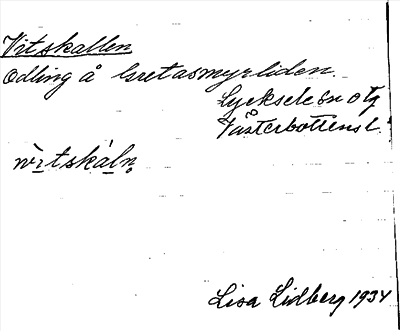 Vitskallen
Odling å Gretasmyrliden
Lycksele sn o tg
Västerbottens l.
vı̀tskáln̥
Lisa Lidberg 1934